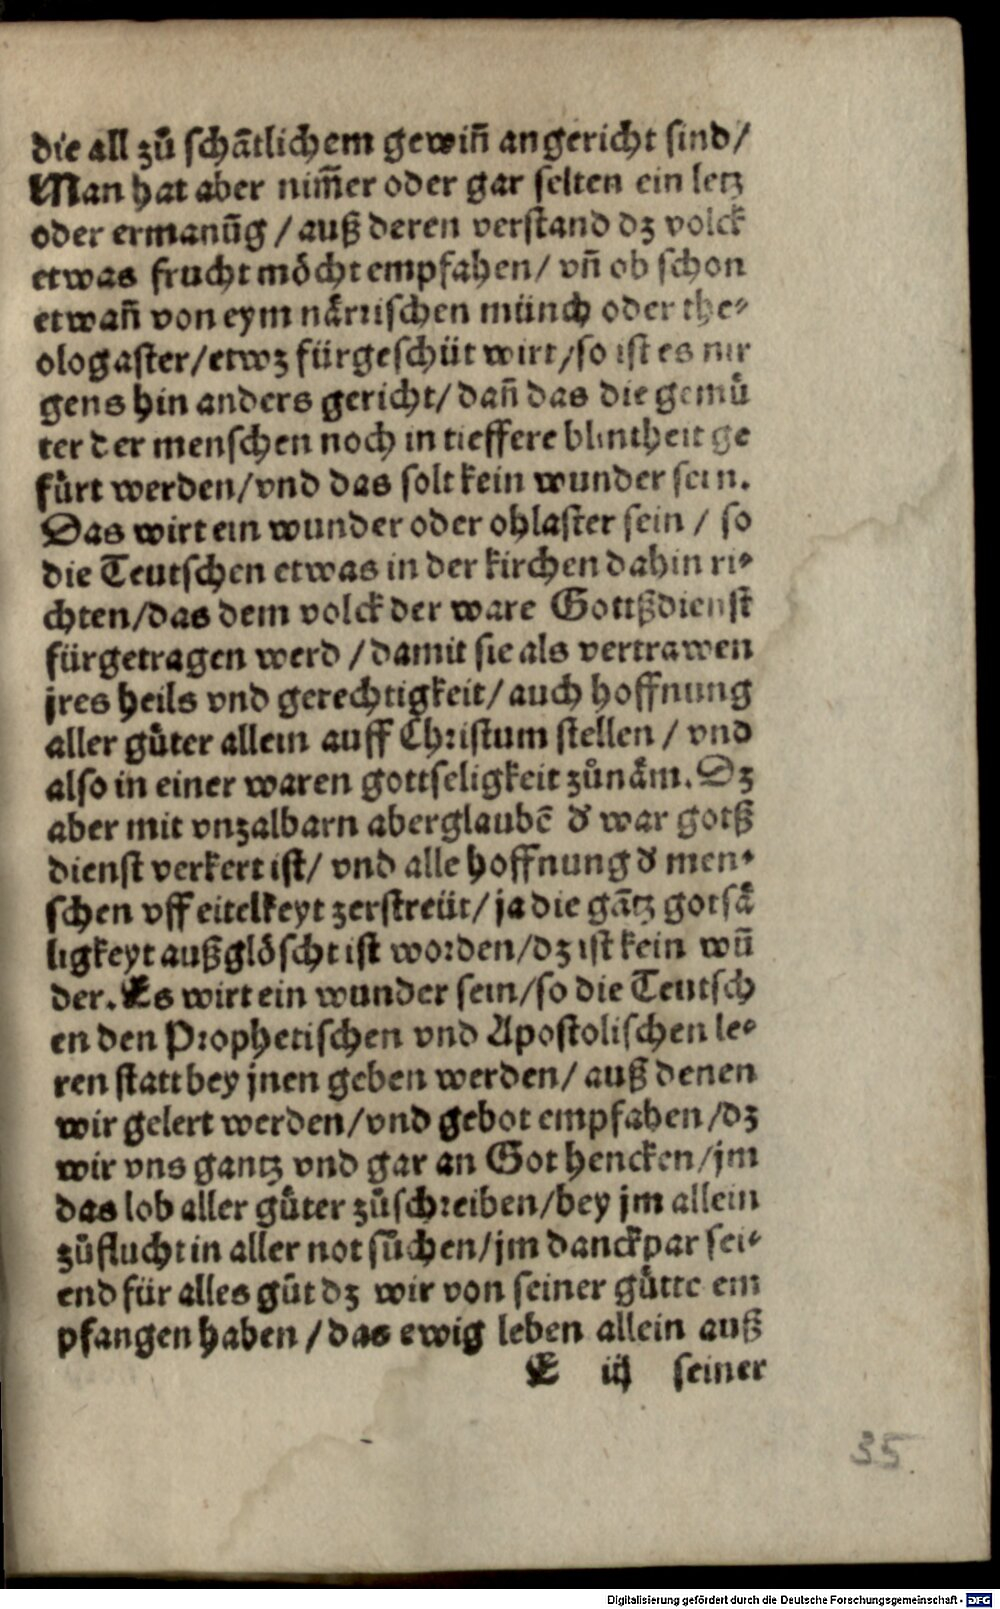 die all zuͦ schãtlichem gewiñ angericht sind/
Man hat aber nim̃er oder gar selten ein letz
oder ermanũg / auß deren verstand dz volck
etwas frucht moͤcht empfahen/ vñ ob schon
etwañ von eym naͤrrischen muͤnch oder the⸗
ologaster/etwz fuͤrgeschuͤt wirt/so ist es nir
gens hin anders gericht/ dañ das die gemuͤ
ter der menschen noch in tieffere blintheit ge
fuͤrt werden/vnd das solt kein wunder sein.
Das wirt ein wunder oder ohlaster sein / so
die Teutschen etwas in der kirchen dahin ri⸗
chten/das dem volck der ware Gottßdienst
fuͤrgetragen werd / damit sie als vertrawen
jres heils vnd gerechtigkeit/ auch hoffnung
aller guͤter allein auff Christum stellen / vnd
also in einer waren gottseligkeit zuͦnaͤm. Dz
aber mit vnzalbarn aberglaubẽ đ war gotß
dienst verkert ist/ vnd alle hoffnung đ men⸗
schen vff eitelkeyt zerstreuͤt/ ja die gãtz gotsaͤ
ligkeyt außgloͤscht ist worden/dz ist kein wũ
der. Es wirt ein wunder sein/so die Teutsch
en den Prophetischen vnd Apostolischen le⸗
ren statt bey jnen geben werden/ auß denen
wir gelert werden/vnd gebot empfahen/dz
wir vns gantz vnd gar an Got hencken/jm
das lob aller guͤter zuͦschreiben/bey jm allein
zuͦflucht in aller not suͦchen/jm danckpar sei⸗
end fuͤr alles guͦt dz wir von seiner guͤtte em
pfangen haben / das ewig leben allein auß
E iij seiner
35.
Digitalisierung gefördert durch die Deutsche Forschungsgemeinschaft - DFG